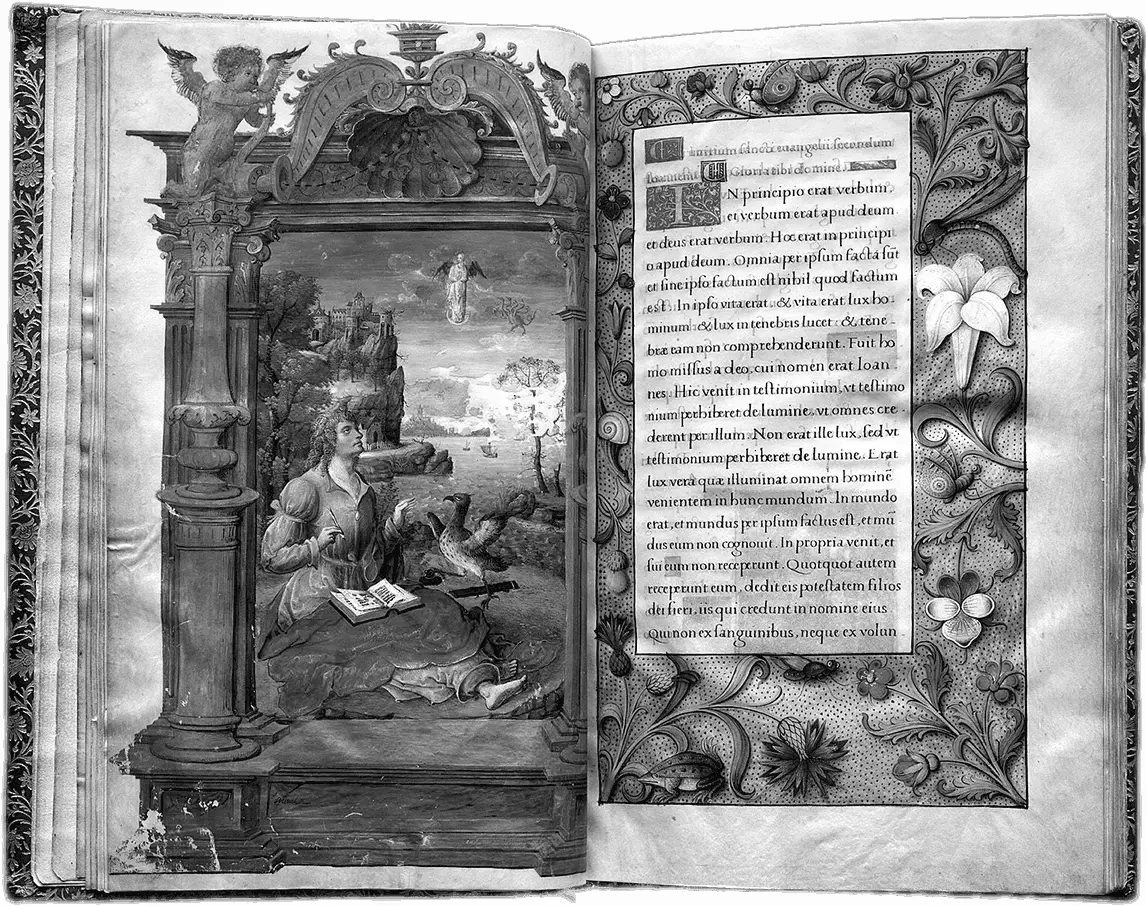 Initium sancti euangelii secundum
Ioannem. Gloria tibi domine.
IN principio erat verbum,
et verbum erat apud deum
et deus erat verbum. Hoc erat in principi
o apud deum. Omnia per ipsum facta sũt
et sine ipso factum est nihil quod factum
est. In ipso vita erat, & vita erat lux ho
minum: & lux in tenebris lucet: & tene-
bræ eam non comprehenderunt. Fuit ho
mo missus a deo, cui nomen erat Ioan
nes. Hic venit in testimonium, vt testimo
nium perhiberet de lumine, vt omnes cre
derent per illum. Non erat ille lux, sed vt
testimonium perhiberet de lumine. Erat
lux vera quæ illuminat omnem hominẽ
venientem in hunc mundum. In mundo
erat, et mundus per ipsum factus est, et mũ
dus eum non cognouit. In propria venit, et
sui eum non receperunt. Quotquot autem
receperunt eum, dedit eis potestatem filios
dei fieri, iis qui credunt in nomine eius
Qui non ex sanguinibus, neque ex volun